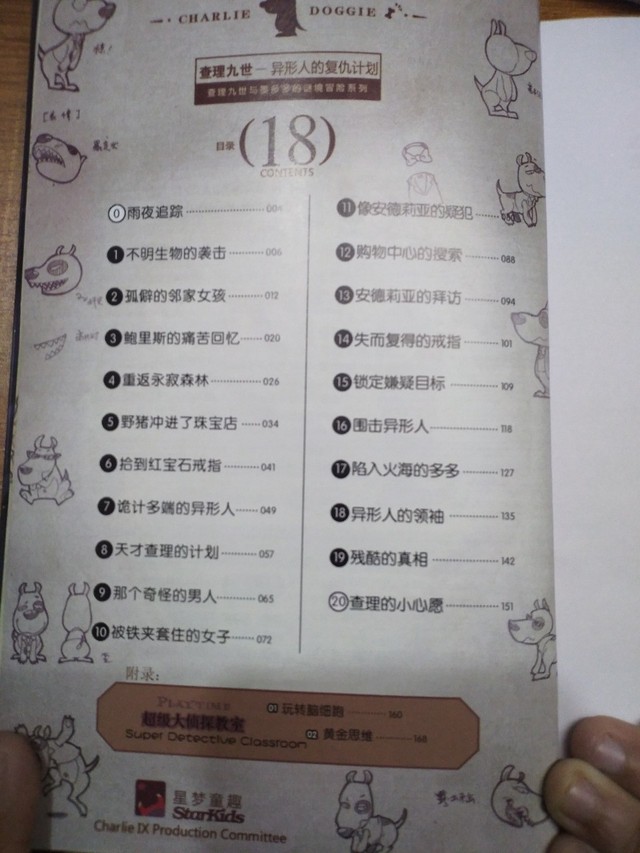 CHARLIE DOGGIE
查理九世——异形人的复仇计划
查理九世与墨多多的谜境冒险系列
目录 (18)
CONTENTS
0 雨夜追踪
1 不明生物的袭击 006
2 孤僻的邻家女孩 012
3 鲍里斯的痛苦回忆 020
4 重返永寂森林 026
5 野猪冲进了珠宝店 034
6 拾到红宝石戒指 041
7 诡计多端的异形人 049
8 天才查理的计划 057
9 那个奇怪的男人 065
10 被铁夹套住的女子 072
11 像安德莉亚的疑犯
12 购物中心的搜索 088
13 安德莉亚的拜访 094
14 失而复得的戒指 101
15 锁定嫌疑目标 109
16 围击异形人 118
17 陷入火海的多多 127
18 异形人的领袖 135
19 残酷的真相 142
20 查理的小心愿 151
附录：
PLAYTIME
超级大侦探教室
Super Detective Classroom
01 玩转脑细胞 160
02 黄金思维 168
星梦童趣
StarKids
Charlie IX Production Committee